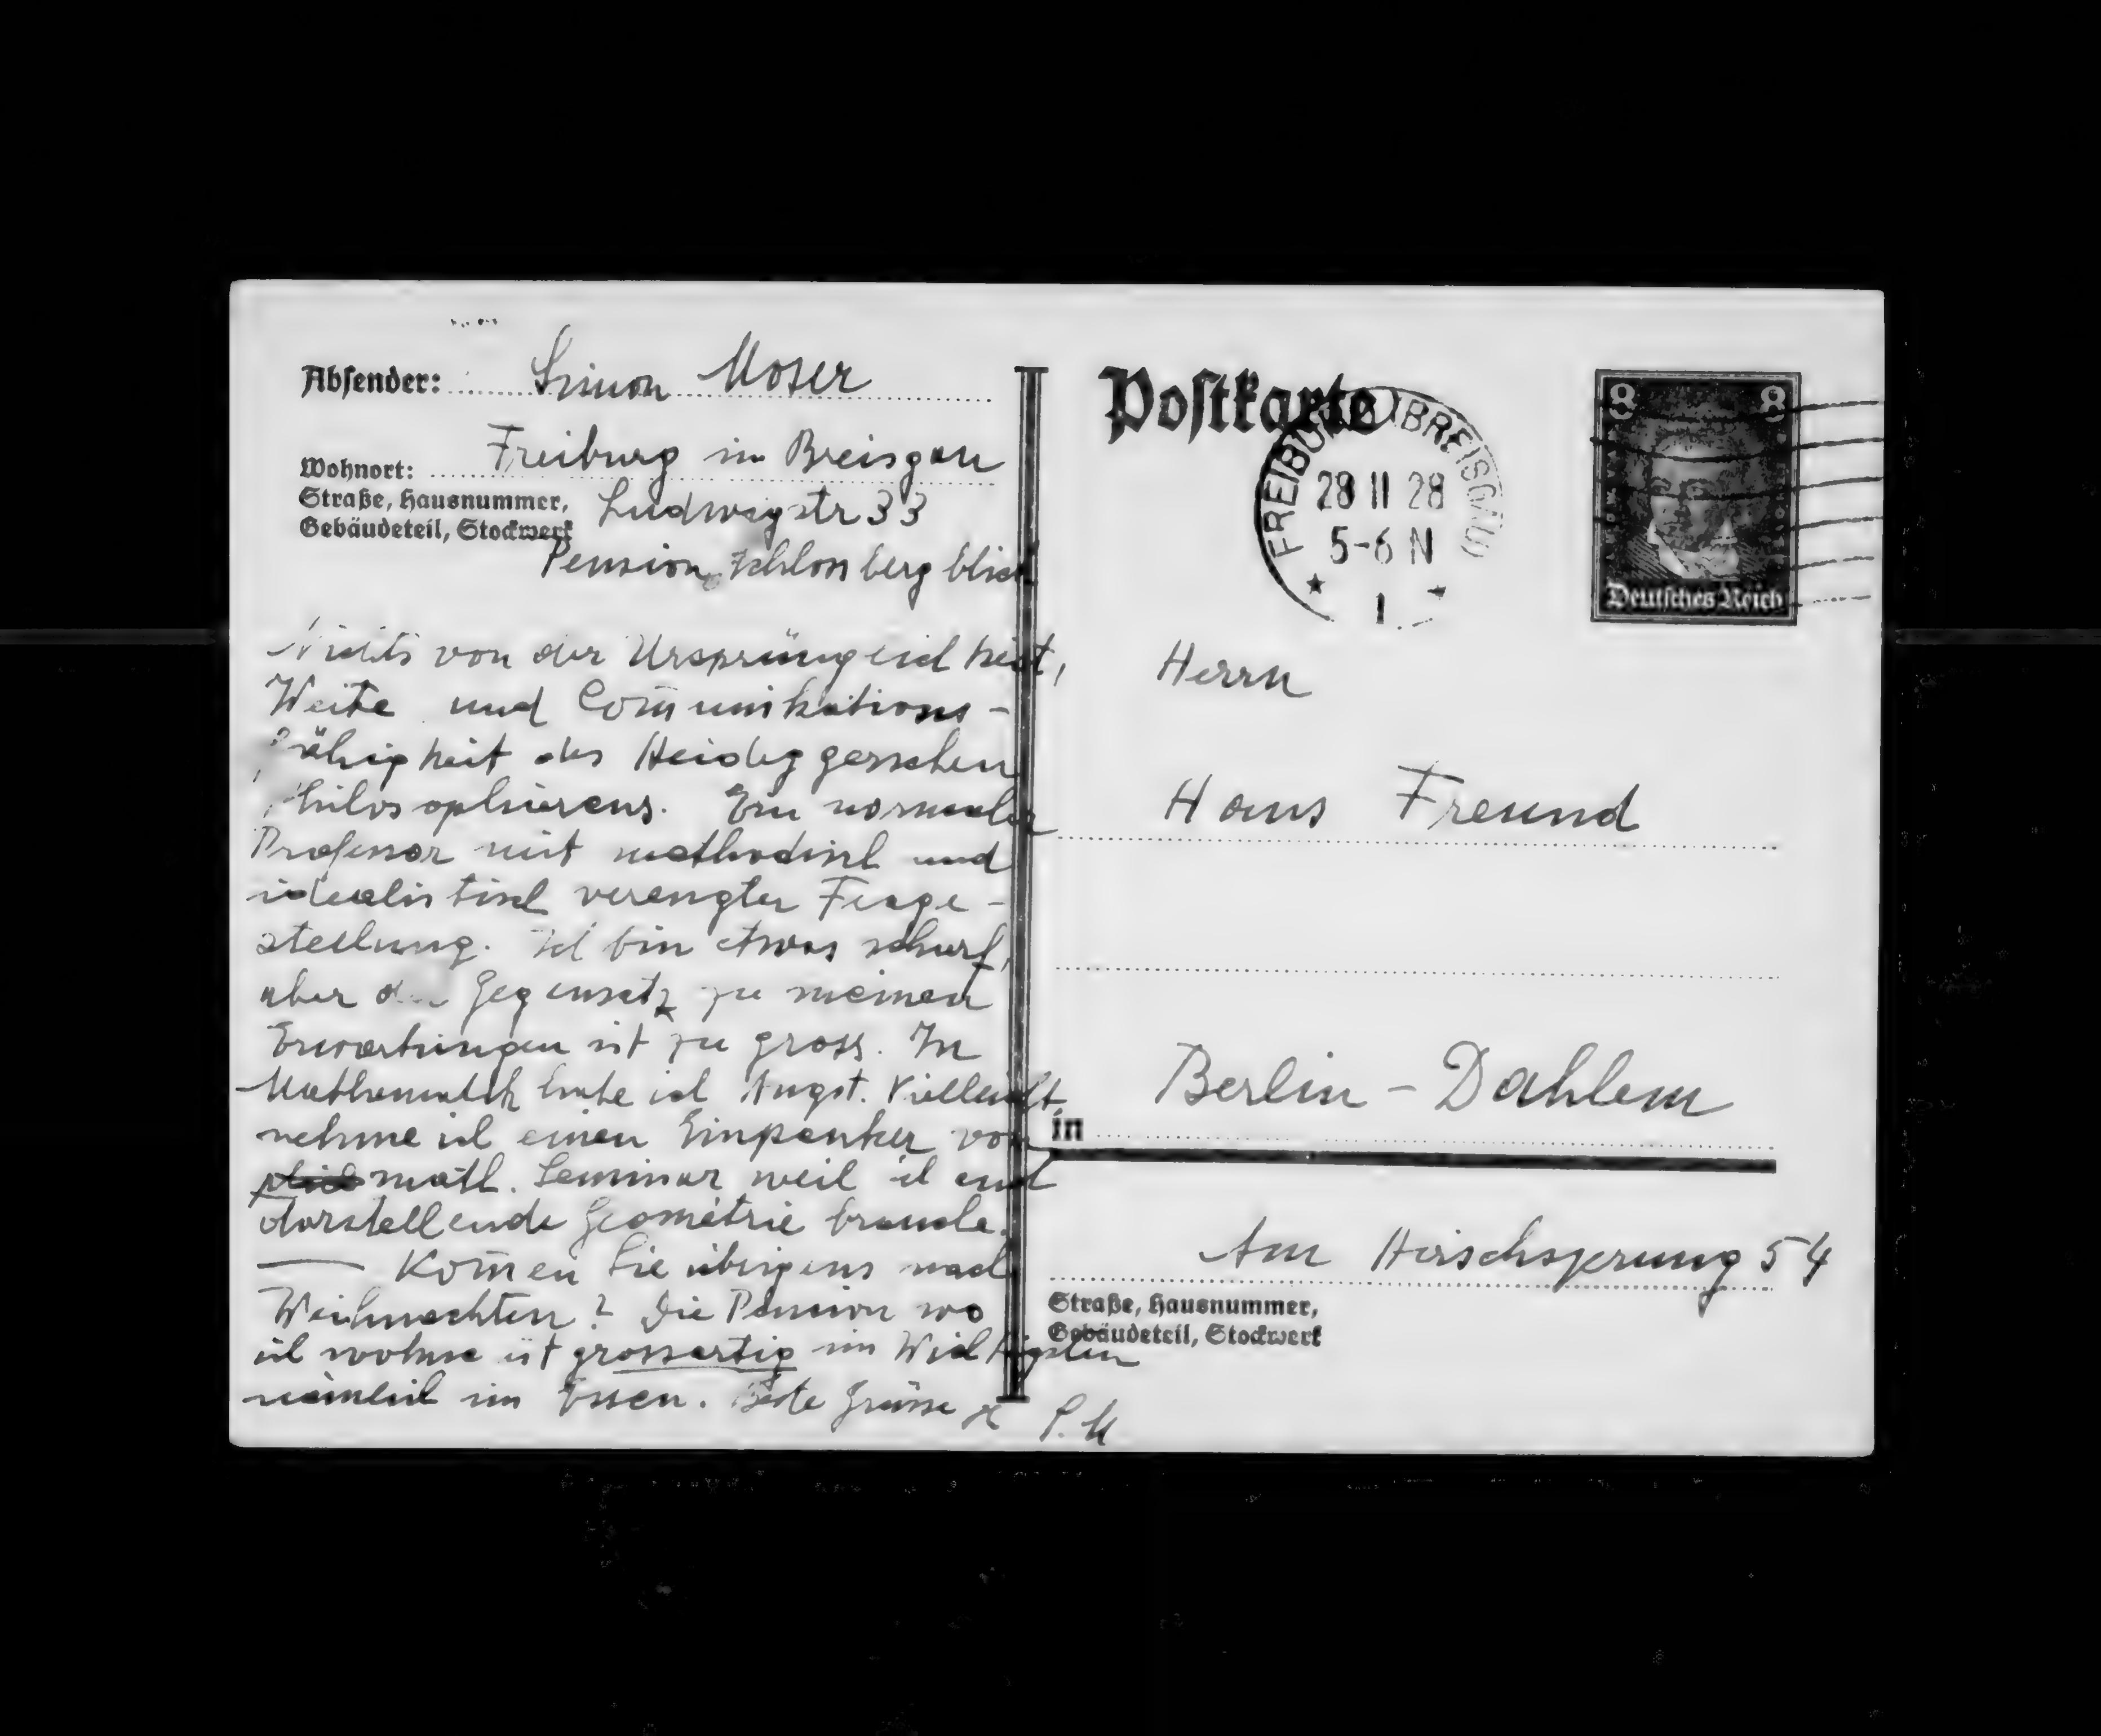 Absender: Simon Moser
Wohnort: Freiburg im Breisgau
Straße, Hausnummer, Ludwigstr 33
Gebäudeteil, Stockwerk
Pension Schlossbergblick
Nichts von der Ursprünglichkeit,
Weite und Com̄unikations-
fähigkeit des Heideggerschen
Philosophierens. Ein normaler
Professor mit methodisch und
idealistisch verengter Frage-
stellung. Ich bin etwas scharf,
aber der Gegensatz zu meinen
Erwartungen ist zu gross. In
Mathematik habe ich Angst. Vielleicht
nehme ich einen Einpauker vom
math. Seminar weil ich auch
darstellende Geometrie brauche.
— Kom̄en Sie übrigens nach
Weihnachten? Die Pension wo
ich wohne ist grossartig im Wichtigsten
nämlich im Essen. Beste Grüsse
S. M
Postkarte
FREIBURG (BREISGAU)
28 11 28
5-6 N
1
8 8
Deutsches Reich
Herrn
Hans Freund
Berlin-Dahlem
in
Am Hirschsprung 54
Straße, Hausnummer,
Gebäudeteil, Stockwerk